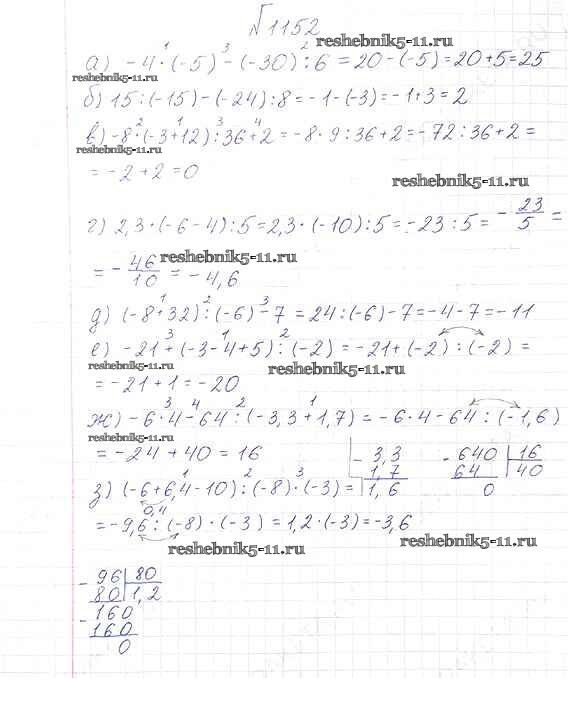 №1152
reshebnik5-11.ru
а) -4 · (-5) - (-30) : 6 = 20 - (-5) = 20 + 5 = 25
reshebnik5-11.ru
б) 15 : (-15) - (-24) : 8 = -1 - (-3) = -1 + 3 = 2
в) -8 · (-3 + 12) : 36 + 2 = -8 · 9 : 36 + 2 = -72 : 36 + 2 =
reshebnik5-11.ru
= -2 + 2 = 0
reshebnik5-11.ru
г) 2,3 · (-6 - 4) : 5 = 2,3 · (-10) : 5 = -23 : 5 = -23/5 =
reshebnik5-11.ru
= -46/10 = -4,6
д) (-8 + 32) : (-6) - 7 = 24 : (-6) - 7 = -4 - 7 = -11
е) -21 + (-3 - 4 + 5) : (-2) = -21 + (-2) : (-2) =
reshebnik5-11.ru reshebnik5-11.ru
= -21 + 1 = -20
ж) -6 · 4 - 64 : (-3,3 + 1,7) = -6 · 4 - 64 : (-1,6)
reshebnik5-11.ru
= -24 + 40 = 16
- 3,3
1,7
1,6
- 640 | 16
64 | 40
0
з) (-6 + 6,4 - 10) : (-8) · (-3) =
0,4
= -9,6 : (-8) · (-3) = 1,2 · (-3) = -3,6
reshebnik5-11.ru reshebnik5-11.ru
- 96 | 80
80 | 1,2
- 160
160
0